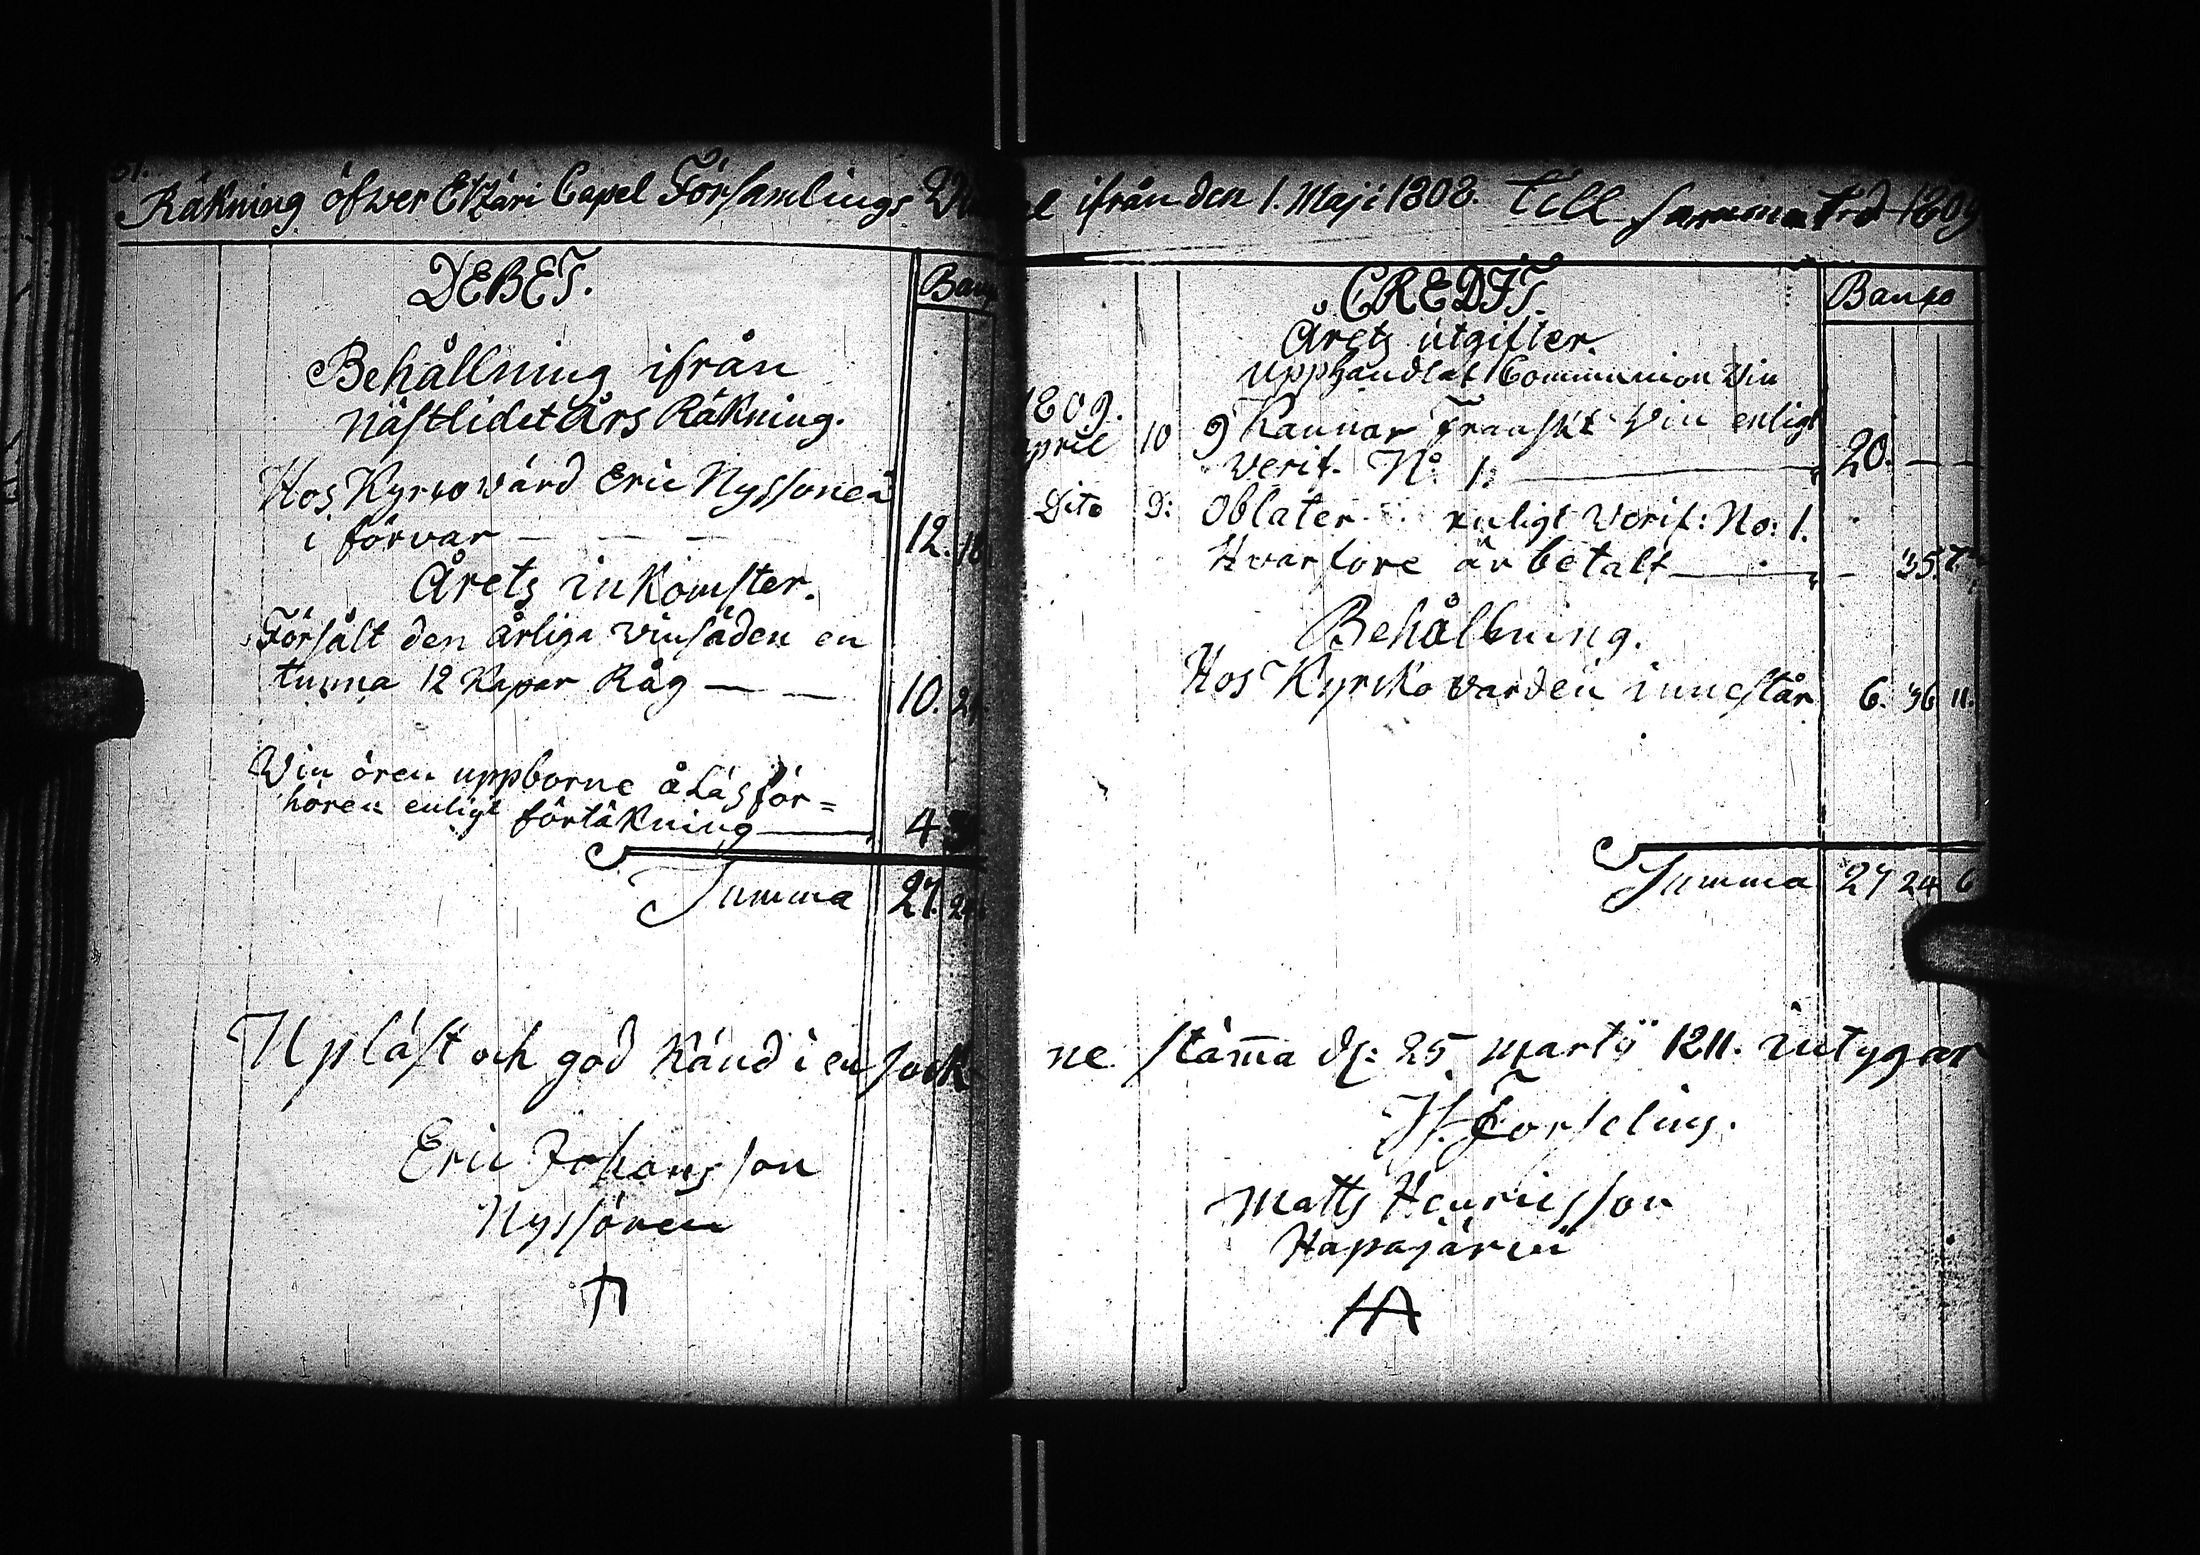 51.
Räkning öfwer Etzäri Capel Församlings
ifrån den 1. Maji 1808. till samma tid 1809
DEBET.
Banco
Behållning ifrån
nästlidet Års Räkning.
Hos Kyrcowärd Eric Nyssönen
i förvar — — — 12. 18
Årets inkomster.
Försålt den årliga vinsäden en
tunna 12 Kapar Råg — — 10. 21
Vin ören uppborne å Läsför=
hören enligt förtäkning — 4.
Summa 27. 24
Upläst och god känd i en Sock
Eric Johansson
Nyssönen
CREDIT.
Banco
Årets utgifter.
Upphandlat Communion Vin
1809.
april 10 9 Kannor Franskt Vin enligt
Verif. No 1. — 20. — —
Dito D: Oblater enligt Verif: No: 1.
Hvarföre är betalt — — 35. 7
Behållning.
Hos Kyrckovärden innestår 6. 36 11.
Summa 27 24 6
ne stämma d: 25 Martÿ 1811. intygar
H. Forselius.
Matts Henricsson
Hapajärwi
HA